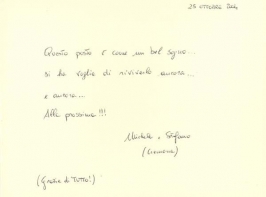 25 OTTOBRE
Questo posto è come un bel sogno...
si ha voglia di riviverlo ancora...
e ancora...
Alla prossima !!!
Michela e Stefano
(Cremona)
(Grazie di TUTTO!)